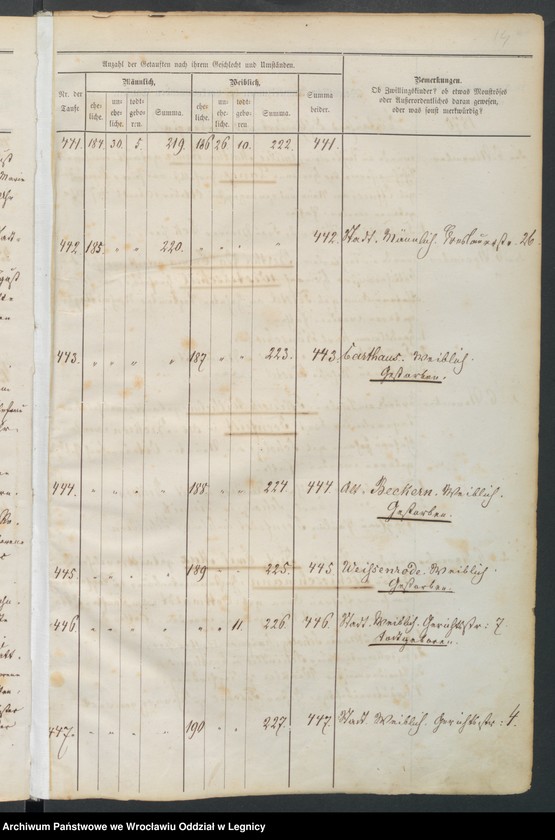 Anzahl der Getauften nach ihrem Geschlecht und Umständen.
Nr. der Taufe
Männlich,
Weiblich,
Summa beider.
Bemerkungen.
Ob Zwillingskinder? ob etwas Monströses
oder Außerordentliches daran gewesen,
oder was sonst merkwürdig?
ehe-
liche.
un-
ehe-
liche.
todt-
gebo-
ren.
Summa.
ehe-
liche.
un-
ehe-
liche.
todt-
gebo-
ren
Summa.
441. 184. 30. 5. 219. 186 26 10. 222. 441.
442 185. " " 220. " " " " 442. Stadt. Männlich. Breslauerstr. 26
443. " " " " 187 " " 223. 443. Carthaus. Weiblich.
Gestorben.
444. " " " " 188 " " 224. 444. Alt. Beckern. Weiblich.
Gestorben.
445. " " " " 189 " " 225. 445 Weißenrode. Weiblich.
Gestorben.
446. " " " " " " 11. 226 446 Stadt. Weiblich. Gerichtsstr: 7.
Todtgeboren.
447. " " " " 190 " " 227. 447. Stadt. Weiblich. Gerichtsstr: 4.
Archiwum Państwowe we Wrocławiu Oddział w Legnicy